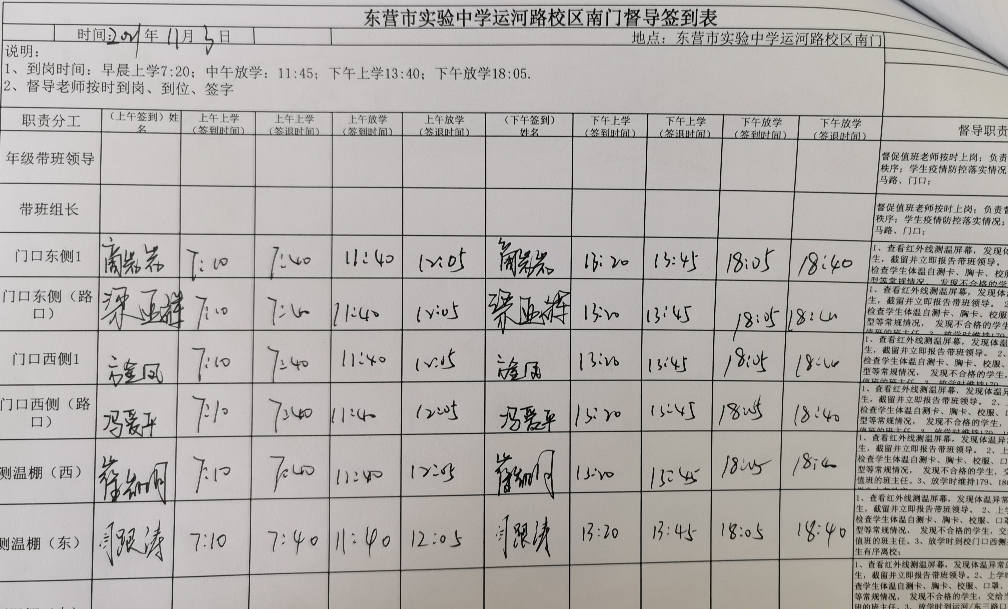 东营市实验中学运河路校区南门督导签到表
时间:2021年 11月 3日 地点：东营市实验中学运河路校区南门
说明：
1、到岗时间：早晨上学7:20；中午放学：11:45；下午上学13:40；下午放学18:05.
2、督导老师按时到岗、到位、签字
职责分工 （上午签到）姓名 上午上学（签到时间） 上午上学（签退时间） 上午放学（签到时间） 上午放学（签退时间） （下午签到）姓名 下午上学（签到时间） 下午上学（签退时间） 下午放学（签到时间） 下午放学（签退时间） 督导职责
年级带班领导
督促值班老师按时上岗；负责
秩序；学生疫情防控落实情况
马路、门口；
带班组长
督促值班老师按时上岗；负责
秩序；学生疫情防控落实情况；
马路、门口；
门口东侧1 7:10 7:40 11:40 12:05 13:20 13:45 18:05 18:40
1、查看红外线测温屏幕，发现体
生，截留并立即报告带班领导。
检查学生体温自测卡、胸卡、校服
型等常规情况，发现不合格的学
门口东侧（路口） 梁亚辉 7:10 7:40 11:40 12:05 梁亚辉 13:20 13:45 18:05 18:40
1、查看红外线测温屏幕，发现体
生，截留并立即报告带班领导。 2
检查学生体温自测卡、胸卡、校服
型等常规情况， 发现不合格的学生，
值班的班主任。3、放学时维持179
门口西侧1 方金凤 7:10 7:40 11:40 12:05 方金凤 13:20 13:45 18:05 18:40
1、查看红外线测温屏幕，发现体温
生，截留并立即报告带班领导。 2、
检查学生体温自测卡、胸卡、校服、
型等常规情况， 发现不合格的学生，
门口西侧（路口） 冯爱平 7:10 7:40 11:40 12:05 冯爱平 13:20 13:45 18:05 18:40
1、查看红外线测温屏幕，发现体温
生，截留并立即报告带班领导。 2、
检查学生体温自测卡、胸卡、校服、
型等常规情况， 发现不合格的学生，
测温棚（西） 7:10 7:40 11:40 12:05 13:20 13:45 18:05 18:40
1、查看红外线测温屏幕，发现体温异
生，截留并立即报告带班领导。 2、上
检查学生体温自测卡、胸卡、校服、口
型等常规情况， 发现不合格的学生，交
值班的班主任。3、放学时维持179、180
测温棚（东） 闫跟涛 7:10 7:40 11:40 12:05 闫跟涛 13:20 13:45 18:05 18:40
1、查看红外线测温屏幕，发现体温异常
生，截留并立即报告带班领导。 2、上学
检查学生体温自测卡、胸卡、校服、口罩
型等常规情况， 发现不合格的学生，交
值班的班主任。3、放学时到校门口西侧
生有序离校；
1、查看红外线测温屏幕，发现体温异常的
生，截留并立即报告带班领导。2、上学时
检查学生体温自测卡、胸卡、校服、口罩、
等常规情况， 发现不合格的学生，交给